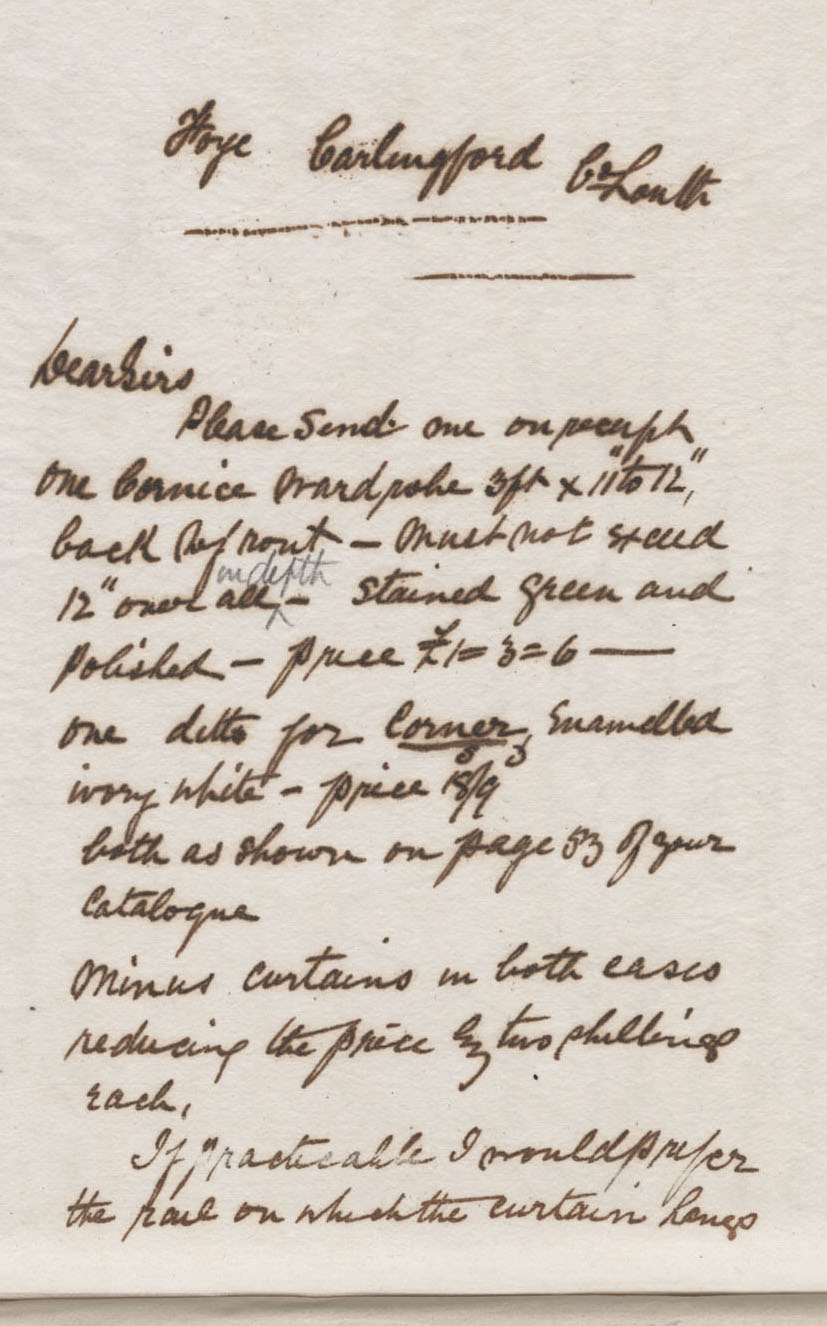 Foye Carlingford Co Louth
Dear Sirs
Please Send me on receipt
one Cornice Wardrobe 3ft x 11" to 12",
back to front – Must not exceed
in depth
12" over all – Stained green and
Polished – price £1=3=6 —
one ditto for Corner, Enamelled
ivory white – price 18/9
both as shown on page 53 of your
Catalogue
Minus curtains in both cases
reducing the price by two shillings
each,
If practicable I would prefer
the rail on which the curtain hangs